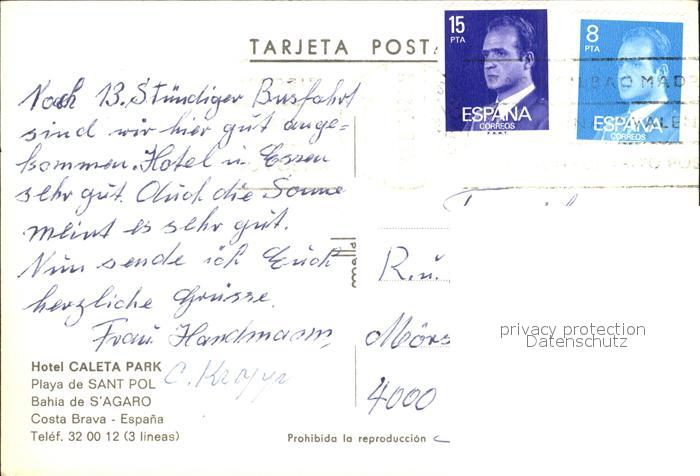 TARJETA POSTA
15
PTA
ESPAÑA
CORREOS
8
PTA
ESPAÑA
CORREOS
Nach 13. Stündiger Busfahrt
sind wir hier gut ange=
kommen. Hotel u. Essen
sehr gut. Auch die Sonne
meint es sehr gut.
Nun sende ich Euch
herzliche Grüsse.
Frau Handmann,
R.u.
Mörs
4000
privacy protection
Datenschutz
Hotel CALETA PARK
Playa de SANT POL
Bahia de S'AGARO
Costa Brava - España
Teléf. 32 00 12 (3 lineas)
Prohibida la reproducción